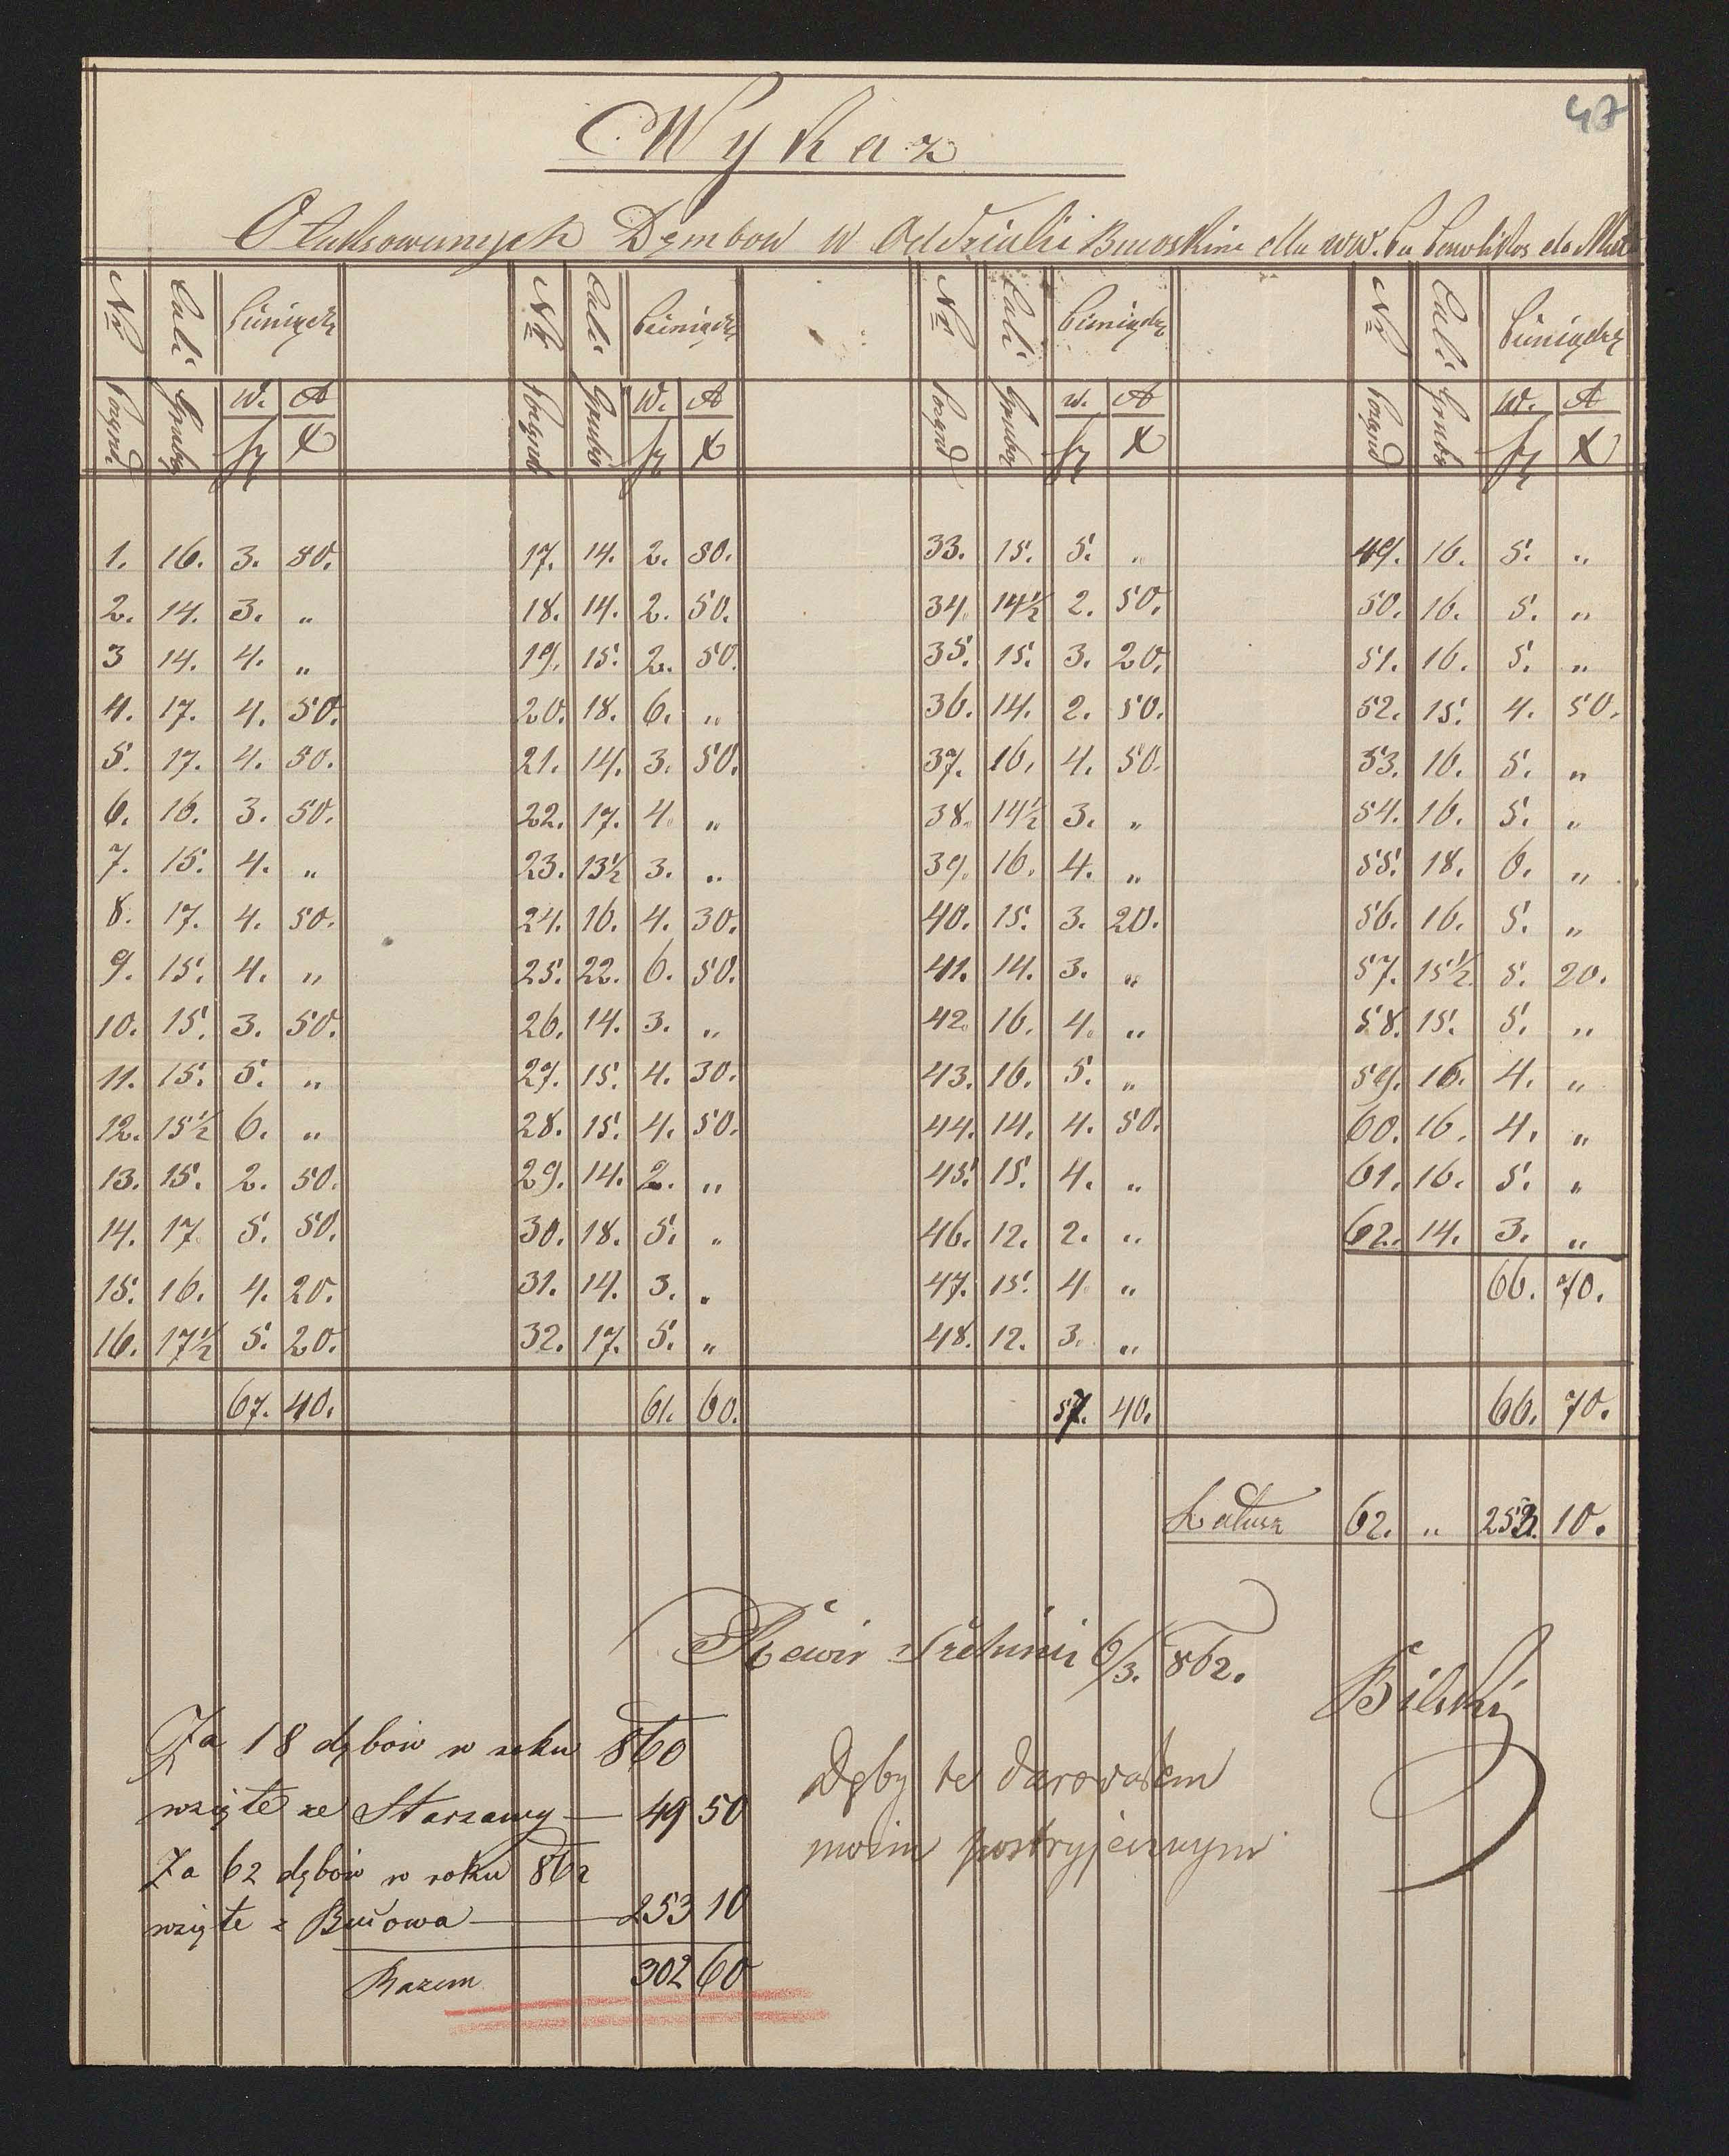 47
Wykaz
Otaksowanych Dembow w Oddziale
Nr Cali Pieniądze Nr Cali Pieniądze Nr Cali Pieniądze Nr Cali Pieniądze
Porząd. Grubo w. A Porząd Grubo w. A Porząd Grubo w. A Porząd Grubo w. A
fl x fl x fl x fl x
1. 16. 3. 80. 17. 14. 2. 80. 33. 15. 5. „ 49. 16. 5. „
2. 14. 3. „ 18. 14. 2. 50. 34. 14½ 2. 50. 50. 16. 5. „
3 14. 4. „ 19. 15. 2. 50. 35. 15. 3. 20. 51. 16. 5. „
4. 17. 4. 50. 20. 18. 6. „ 36. 14. 2. 50. 52. 15. 4. 50.
5. 17. 4. 50. 21. 14. 3. 50. 37. 16. 4. 50. 53. 16. 5. „
6. 16. 3. 50. 22. 17. 4. „ 38. 14½ 3. „ 54. 16. 5. „
7. 15. 4. „ 23. 13½ 3. „ 39. 16. 4. „ 55. 18. 6. „
8. 17. 4. 50. 24. 16. 4. 30. 40. 15. 3. 20. 56. 16. 5. „
9. 15. 4. „ 25. 22. 6. 50. 41. 14. 3. „ 57. 15½ 5. 20.
10. 15. 3. 50. 26. 14. 3. „ 42. 16. 4. „ 58. 15. 5. „
11. 15. 5. „ 27. 15. 4. 30. 43. 16. 5. „ 59. 16. 4. „
12. 15½ 6. „ 28. 15. 4. 50. 44. 14. 4. 50. 60. 16. 4. „
13. 15. 2. 50. 29. 14. 2. „ 45. 15. 4. „ 61. 16. 5. „
14. 17. 5. 50. 30. 18. 5. „ 46. 12. 2. „ 62. 14. 3. „
15. 16. 4. 20. 31. 14. 3. „ 47. 15. 4. „ 66. 70.
16. 17½ 5. 20. 32. 17. 5. „ 48. 12. 3. „
67. 40. 61. 60. 57. 40. 66. 70.
Latusz 62. „ 253. 10.
Rewir 6/3. 862.
Bilski
Za 18 dębów w roku 860
wzięte ze Starzawy — 49 50
Za 62 dębów w roku 862
wzięte z Bucowa — 253 10
Razem 302 60
Dęby te darowałem
moim